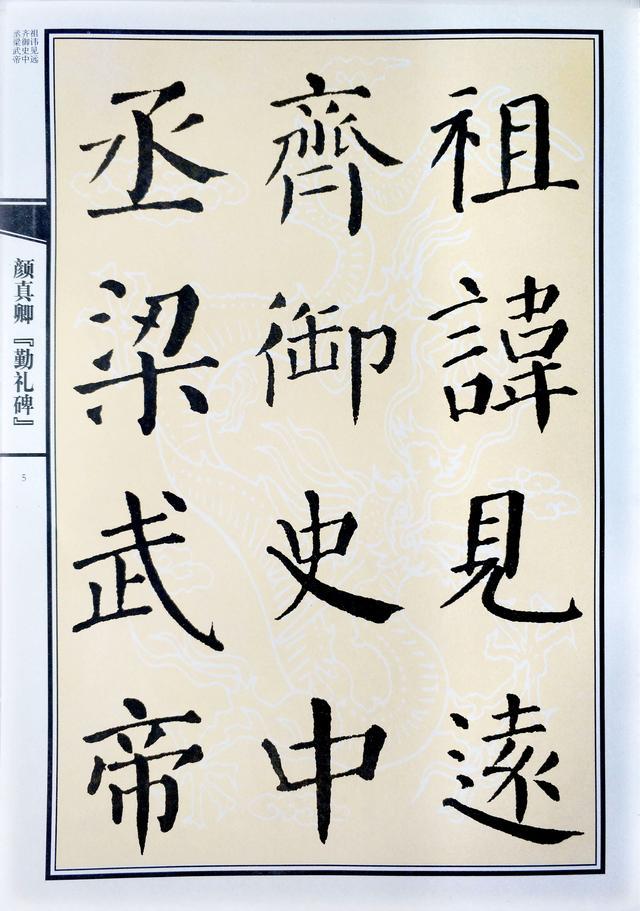 祖諱見遠
齊御史中
丞梁武帝
祖讳见远
齐御史中
丞梁武帝
颜真卿『勤礼碑』
5